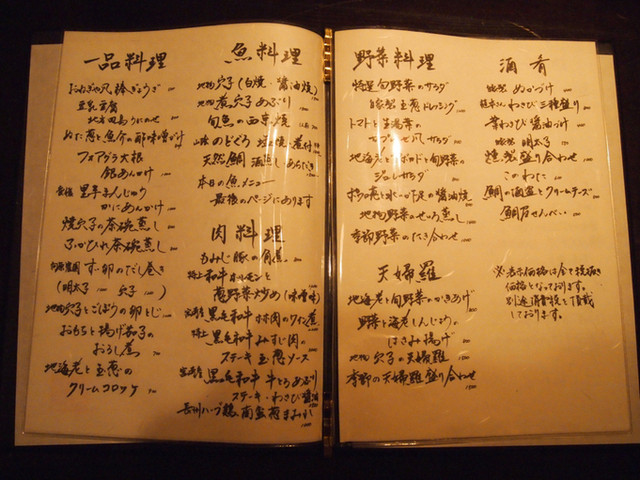 一品料理
おねぎや風棒ぎょうざ
豆乳豆腐
ぬた葱と魚介の酢味噌がけ
フォアグラ大根
銀あんかけ
里芋まんじゅう
かにあんかけ
焼穴子の茶碗蒸し
ふかひれ茶碗蒸し
すっ卵のだし巻き
(明太子 穴子)
地物穴子とごぼうの卵とじ
おもちと揚げ茄子の
おろし煮
地海老と玉葱の
クリームコロッケ
魚料理
地物穴子(白焼・醤油焼)
地物煮穴子あぶり
旬魚の西京焼
のどぐろ 塩焼・煮付
天然鯛 酒蒸し・あらだき
本日の魚メニュー
最後のページにあります
肉料理
もみじ豚の角煮
特上和牛ホルモンと
葱野菜炒め(味噌味)
黒毛和牛ホホ肉のワイン煮
特上黒毛和牛みすじ肉の
ステーキ玉葱ソース
黒毛和牛 牛とろあぶり
ステーキ・わさび醤油
長州ハーブ鶏
野菜料理
特選旬野菜のサラダ
玉葱ドレッシング
トマトと生湯葉の
サラダ
地海老とアボカドと旬野菜の
ジュレサラダ
醤油焼
地物野菜のせいろ蒸し
季節野菜のたき合わせ
天婦羅
地海老と旬野菜のかきあげ
野菜と海老しんじょうの
はさみ揚げ
地物穴子の天婦羅
季節の天婦羅盛り合わせ
酒肴
ぬかづけ
わさび三種盛り
茎わさび醤油づけ
明太子
燻製盛り合わせ
このわた
鯛の酒盗とクリームチーズ
鯛昆せんべい
※表示価格は全て税抜き
価格となっております。
別途消費税として頂戴
しております。